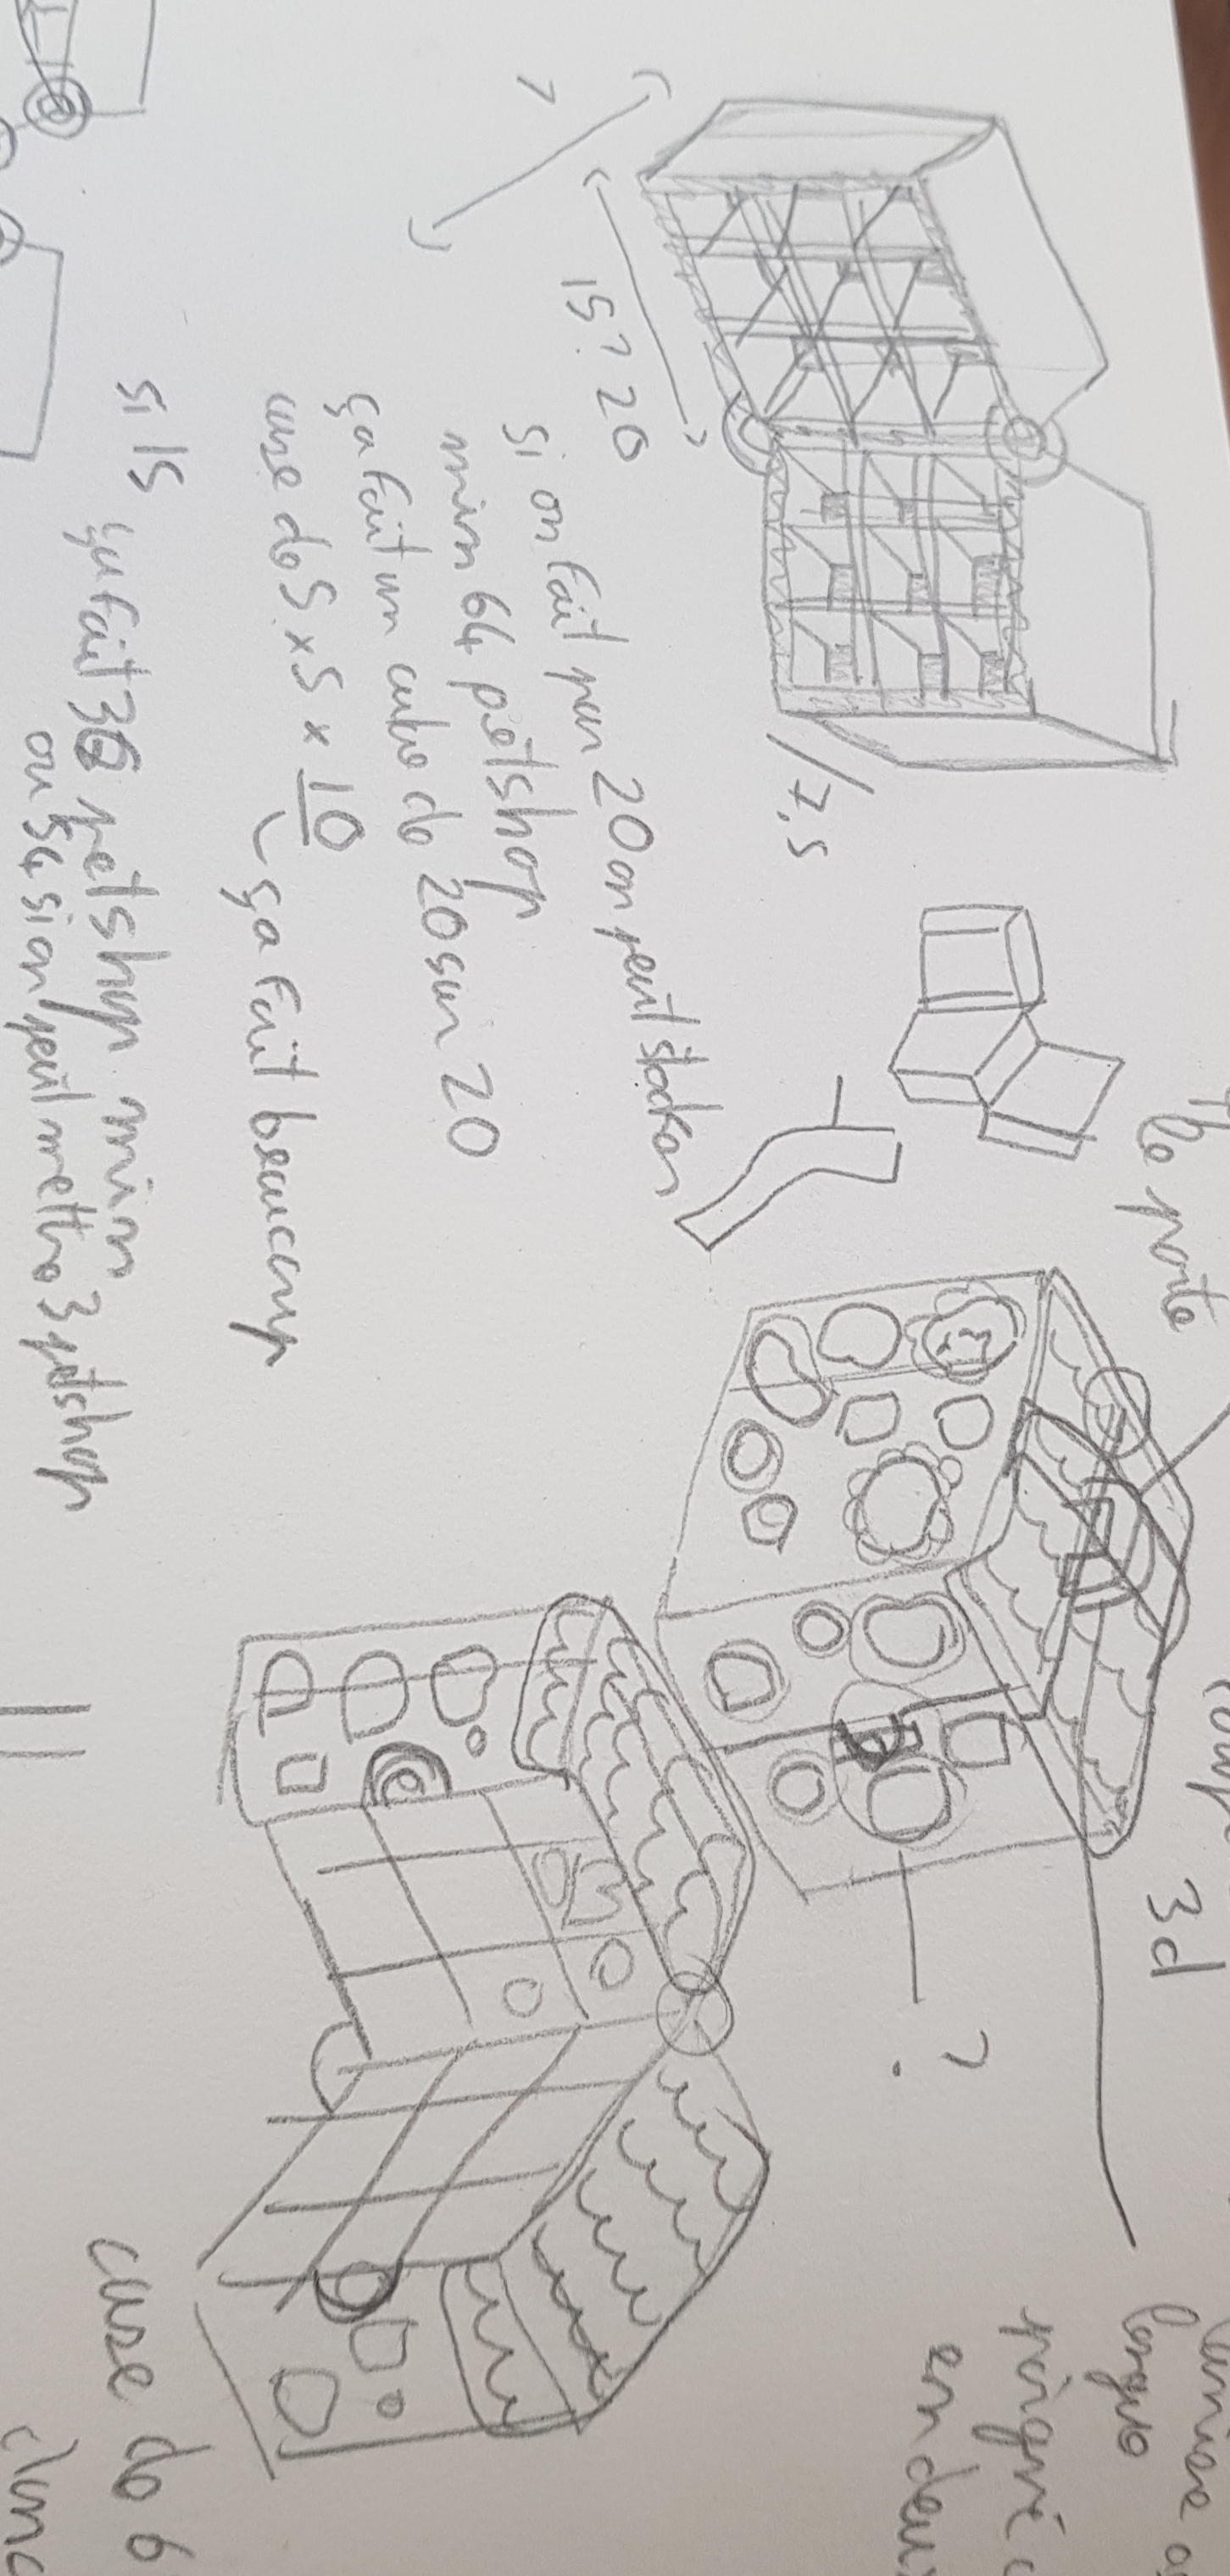 15? 20
7,5
si on fait par 20 on peut stocker
min 64 petshop
ça fait un cube de 20 sur 20
case de 5 x 5 x 10
ça fait beaucoup
si 15 ça fait 36 petshop min
ou 54 si on peut mettre 3 petshop
porte
3d
?
longue
en deux
case de 6